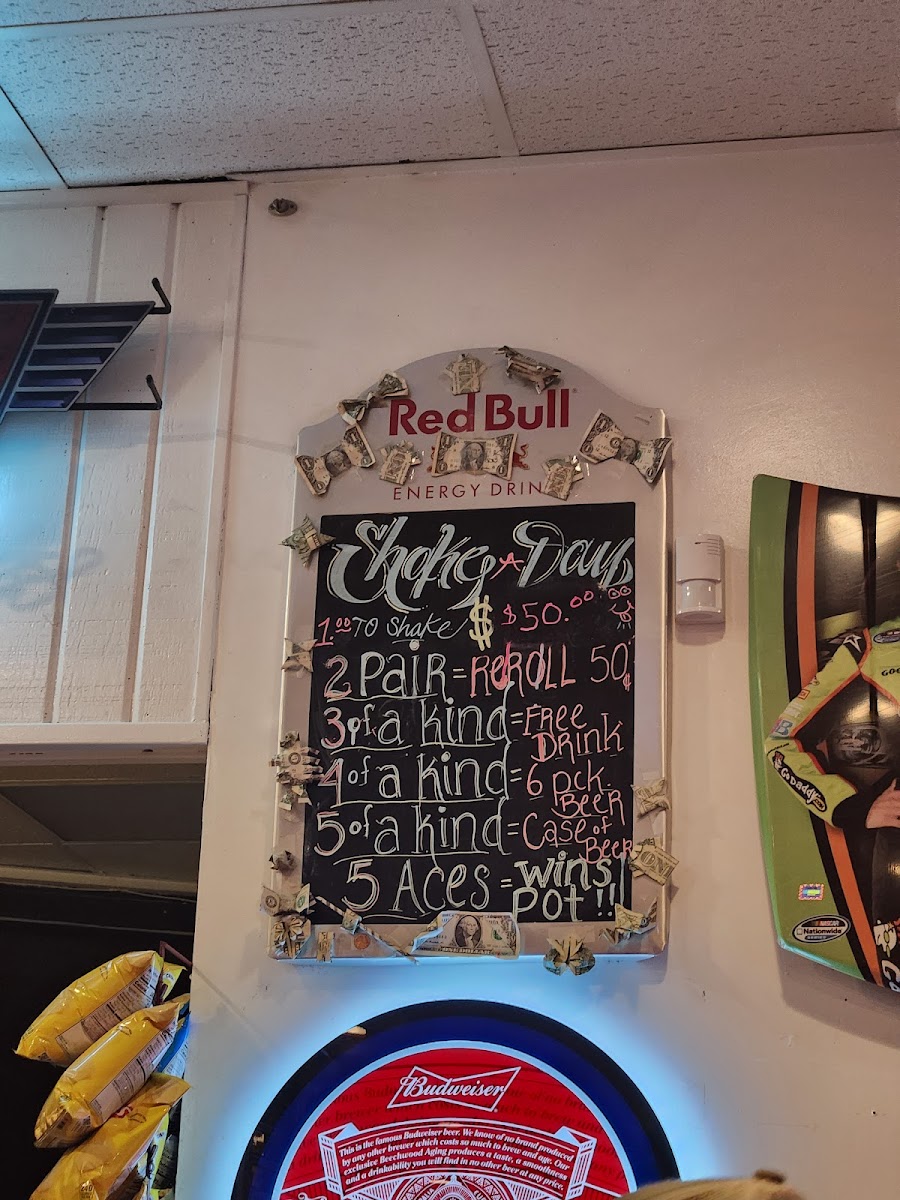 Red Bull
ENERGY DRIN
Shake A Day
1.00 TO Shake $ $50.00
2 PAIR = REROLL 50¢
3 of a kind = FREE DRINK
4 of a kind = 6 pck. BEER
5 of a kind = Case of Beer
5 ACES = WINS POT!!
Budweiser
This is the famous Budweiser beer. We know of no brand produced
by any other brewer which costs so much to brew and age. Our
exclusive Beechwood Aging produces a taste, a smoothness
and a drinkability you will find in no other beer at any price.
GoDaddy
NASCAR
Nationwide
SERIES